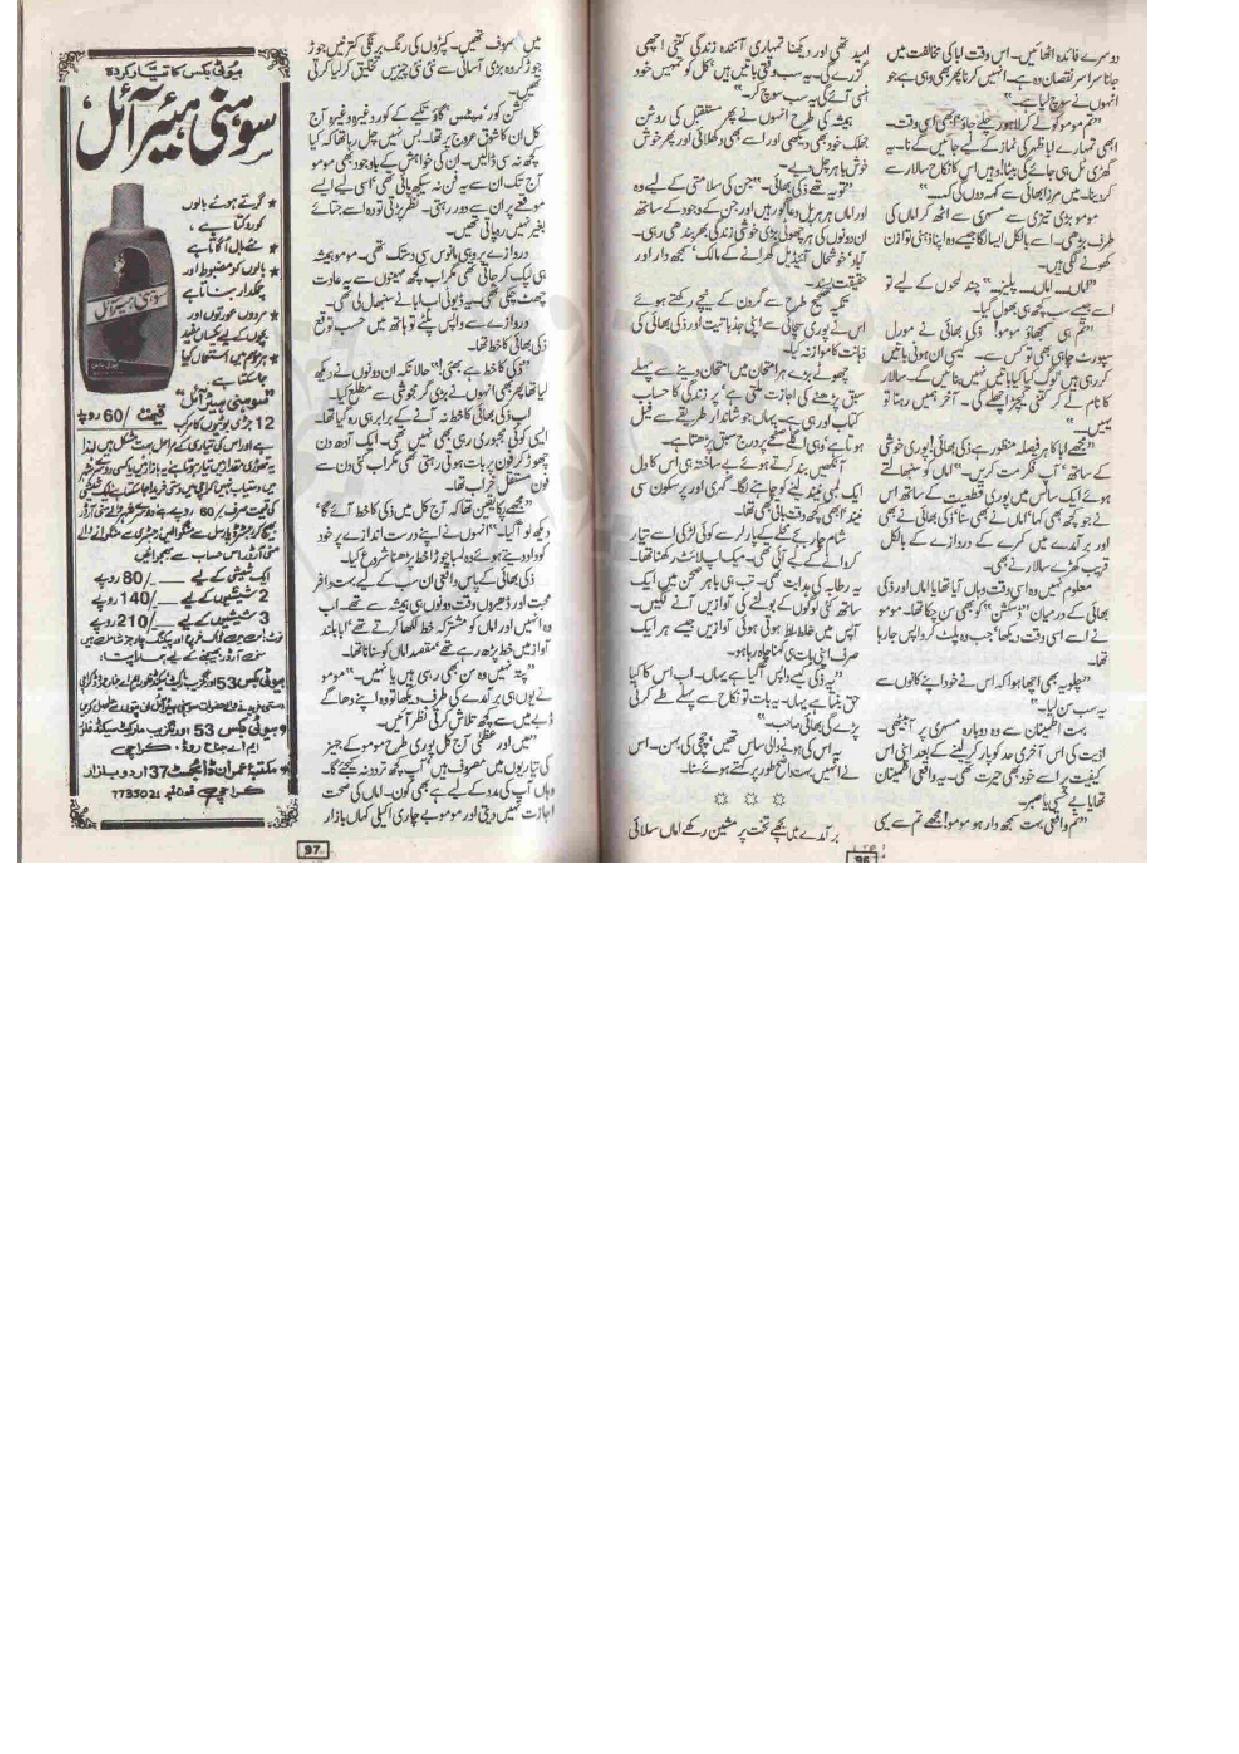 دوسرے فائدہ اٹھائیں۔ اس وقت ابا کی مخالفت میں
جانا سراسر نقصان دہ ہے۔ انہیں کرنا پھر بھی وہی ہے جو
انہوں نے سوچ لیا ہے۔"
"تم مومو کو لے کر لاہور چلے جاؤ! ابھی اسی وقت۔
ابھی تمہارے ابا ظہر کی نماز کے لیے جائیں گے نا۔ یہ
گھڑی ٹل ہی جائے گی بیٹا! وہیں اس کا نکاح سالار سے
کر دینا۔ میں مرزا بھائی سے کہہ دوں گی کہ۔۔۔"
مومو بڑی تیزی سے مسہری سے اٹھ کر اماں کی
طرف بڑھی۔ اسے بالکل ایسا لگا جیسے وہ اپنا ذہنی توازن
کھونے لگی ہیں۔
"اماں۔۔۔ اماں۔۔۔ پلیز۔۔۔" چند لمحوں کے لیے تو
اسے جیسے سب کچھ ہی بھول گیا۔
"تم ہی سمجھاؤ مومو! ذکی بھائی نے مورل
سپورٹ چاہی بھی تو کس سے۔ کیسی ان ہونی باتیں
کر رہی ہیں لوگ کیا کیا باتیں نہیں بنائیں گے۔ سالار
کا نام لے کر کتنی کیچڑ اچھلے گی۔ آخر ہمیں رہنا تو
یہیں۔۔۔"
"مجھے ابا کا ہر فیصلہ منظور ہے ذکی بھائی! پوری خوشی
کے ساتھ' آپ فکر مت کریں۔" اماں کو سنبھالتے
ہوئے ایک سانس میں پوری قطعیت کے ساتھ اس
نے جو کچھ بھی کہا' اماں نے بھی سنا' ذکی بھائی نے بھی
اور برآمدے میں کمرے کے دروازے کے بالکل
قریب کھڑے سالار نے بھی۔
معلوم نہیں وہ اسی وقت وہاں آیا تھا یا اماں اور ذکی
بھائی کے درمیان "ڈسکشن" کو بھی سن چکا تھا۔ مومو
نے اسے اسی وقت دیکھا' جب وہ پلٹ کر واپس جا رہا
تھا۔
"چلو یہ بھی اچھا ہوا کہ اس نے خود اپنے کانوں سے
یہ سب سن لیا۔"
بہت اطمینان سے وہ دوبارہ مسہری پر آ بیٹھی۔
اذیت کی اس آخری حد کو پار کر لینے کے بعد اپنی اس
کیفیت پر اسے خود بھی حیرت تھی۔ یہ واقعی اطمینان
تھا یا بے حسی یا صبر۔
"تم واقعی بہت سمجھ دار ہو مومو! مجھے تم سے یہی
امید تھی اور دیکھنا تمہاری آئندہ زندگی کتنی اچھی
گزرے گی۔ یہ سب وقتی باتیں ہیں' کل کو تمہیں خود
ہنسی آئے گی یہ سب سوچ کر۔"
ہمیشہ کی طرح انہوں نے پھر مستقبل کی روشن
جھلک خود بھی دیکھی اور اسے بھی دکھلائی اور پھر خوش
خوش باہر چل دیے۔
"تو یہ تھے ذکی بھائی۔" جن کی سلامتی کے لیے وہ
اور اماں ہر ہر پل دعا گو رہیں اور جن کے وجود کے ساتھ
ان دونوں کی ہر چھوٹی بڑی خوشی زندگی بھر بندھی رہی۔
آباد' خوشحال آئیڈیل گھرانے کے مالک' سمجھ دار اور
حقیقت پسند۔
تکیہ صحیح طرح سے گردن کے نیچے رکھتے ہوئے
اس نے پوری سچائی سے اپنی جذباتیت اور ذکی بھائی کی
ذہانت کا موازنہ کیا۔
چھوٹے بڑے ہر امتحان میں امتحان دینے سے پہلے
سبق پڑھنے کی اجازت ملتی ہے' پر زندگی کا حساب
کتاب اور ہی ہے۔ یہاں جو شاندار طریقے سے فیل
ہوتا ہے وہی اگلے صفحے پر درج سبق پڑھتا ہے۔
آنکھیں بند کرتے ہوئے بے ساختہ ہی اس کا دل
ایک لمبی نیند لینے کو چاہنے لگا۔ گہری اور پر سکون سی
نیند' ابھی کچھ وقت باقی بھی تھا۔
شام چار بجے محلے کے پارلر سے کوئی لڑکی اسے تیار
کروانے کے لیے آئی تھی۔ میک اپ لائٹ رکھنا تھا۔
یہ رطابہ کی ہدایت تھی۔ تب ہی باہر صحن میں ایک
ساتھ کئی لوگوں کے بولنے کی آوازیں آنے لگیں۔
آپس میں خلط ملط ہوتی ہوئی آوازیں جیسے ہر ایک
صرف اپنی بات ہی کہنا چاہ رہا ہو۔
"یہ ذکی کیسے واپس آ گیا ہے یہاں۔ اب اس کا کیا
حق بنتا ہے یہاں۔ یہ بات تو نکاح سے پہلے طے کرنی
پڑے گی بھائی صاحب۔"
یہ اس کی ہونے والی ساس تھیں' چچی کی بہن۔ اس
نے انہیں بہت واضح طور پر کہتے ہوئے سنا۔
برآمدے میں بچھے تخت پر مشین رکھے اماں سلائی
96
میں مصروف تھیں۔ کپڑوں کی رنگ برنگی کترنیں جوڑ
جوڑ کر وہ بڑی آسانی سے نئی نئی چیزیں تخلیق کر لیا کرتی
تھیں۔
کشن کور' میٹس' گاؤ تکیے کے کور وغیرہ وغیرہ آج
کل ان کا شوق عروج پر تھا۔ بس نہیں چل رہا تھا کہ کیا
کچھ نہ سی ڈالیں۔ ان کی خواہش کے باوجود بھی مومو
آج تک ان سے یہ فن نہ سیکھ پائی تھی' اسی لیے ایسے
موقعے پر ان سے دور رہتی۔ نظر پڑتی تو وہ اسے جتائے
بغیر نہیں رہ پاتی تھیں۔
دروازے پر وہی مانوس سی دستک تھی۔ مومو ہمیشہ
ہی لپک کر جاتی تھی مگر اب کچھ مہینوں سے یہ عادت
چھٹ چکی تھی۔ یہ ڈیوٹی اب ابا نے سنبھال لی تھی۔
دروازے سے واپس پلٹے تو ہاتھ میں حسب توقع
ذکی بھائی کا خط تھا۔
"ذکی کا خط ہے بھئی!" حالانکہ ان دونوں نے دیکھ
لیا تھا پھر بھی انہوں نے بڑی گرمجوشی سے مطلع کیا۔
اب ذکی بھائی کا خط نہ آنے کے برابر ہی رہ گیا تھا۔
ایسی کوئی مجبوری رہی بھی نہیں تھی۔ ایک آدھ دن
چھوڑ کر فون پر بات ہوتی رہتی تھی مگر اب کئی دن سے
فون مستقل خراب تھا۔
"مجھے پکا یقین تھا کہ آج کل میں ذکی کا خط آئے گا'
دیکھ لو آ گیا۔" انہوں نے اپنے درست اندازے پر خود
کو داد دیتے ہوئے وہ لمبا چوڑا خط پڑھنا شروع کیا۔
ذکی بھائی کے پاس واقعی ان سب کے لیے بہت وافر
محبت اور ڈھیروں وقت دونوں ہی ہمیشہ سے تھے۔ اب
وہ انہیں اور اماں کو مشترکہ خط لکھا کرتے تھے' ابا بلند
آواز میں خط پڑھ رہے تھے' مقصد اماں کو سنانا تھا۔
"پتہ نہیں وہ سن بھی رہی ہیں یا نہیں۔" مومو
نے یوں ہی برآمدے کی طرف دیکھا تو وہ اپنے دھاگے
ڈبے میں سے کچھ تلاش کرتی نظر آئیں۔
"میں اور عظمیٰ آج کل پوری طرح مومو کے جہیز
کی تیاریوں میں مصروف ہیں' آپ کچھ تردد نہ کیجئے گا۔
وہاں آپ کی مدد کے لیے ہے بھی کون۔ اماں کی صحت
اجازت نہیں دیتی اور مومو بے چاری اکیلی کہاں بازار
بیوٹی بکس کا تیار کردہ
سوہنی ہیئر آئل
★ گرتے ہوئے بالوں
کو روکتا ہے،
★ نئے بال اگاتا ہے
★ بالوں کو مضبوط اور
چمکدار بناتا ہے
★ مردوں، عورتوں اور
بچوں کے لیے یکساں مفید
★ ہر موسم میں استعمال کیا
جاسکتا ہے
سوہنی ہیئر آئل
"سوہنی ہیئر آئل"
قیمت /60 روپے
12 جڑی بوٹیوں کا مرکب
ہے اور اس کی تیاری کے مراحل بہت مشکل ہیں لہٰذا
یہ تھوڑی مقدار میں تیار ہوتا ہے یہ بازار میں یا کسی دوسرے شہر
میں دستیاب نہیں کراچی میں دستی خریدا جاسکتا ہے ایک شیشی
کی قیمت صرف /60 روپے ہے دوسرے شہر والے منی آرڈر
بھیج کر رجسٹرڈ پارسل سے منگوالیں رجسٹری سے منگوانے والے
منی آرڈر اس حساب سے بھجوائیں
ایک شیشی کے لیے ___ /80 روپے
2 شیشیوں کے لیے ___ /140 روپے
3 شیشیوں کے لیے ___ /210 روپے
نوٹ: اس میں ڈاک خرچ اور پیکنگ چارجز شامل ہیں
منی آرڈر بھیجنے کے لیے ہمارا پتہ:
بیوٹی بکس 53 اورنگزیب مارکیٹ سیکنڈ فلور ایم اے جناح روڈ کراچی
دستی خریدنے والے حضرات سوہنی ہیئر آئل ان پتوں سے حاصل کریں
بیوٹی بکس 53 اورنگزیب مارکیٹ سیکنڈ فلور
ایم اے جناح روڈ، کراچی
مکتبہ عمران ڈائجسٹ 37 اردو بازار
کراچی فون نمبر 7735021
97